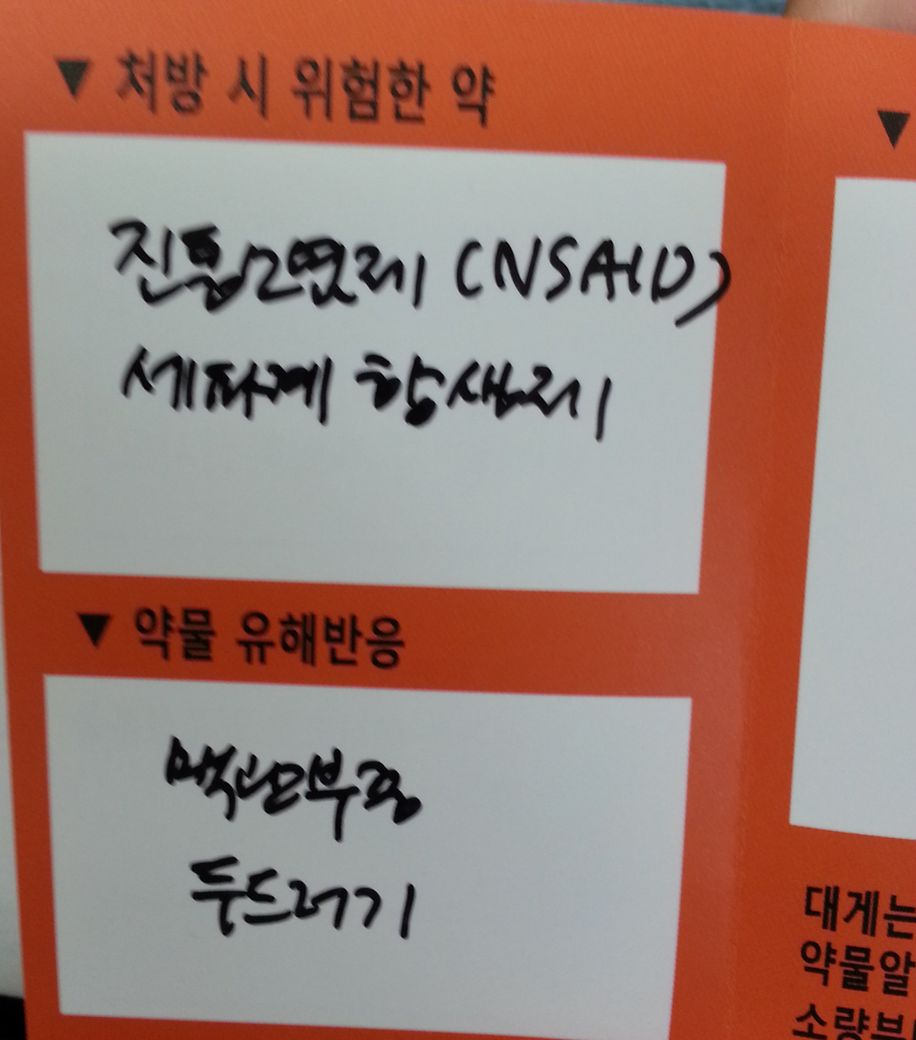 ▼ 처방 시 위험한 약
진통소염제 (NSAID)
세파계 항생제
▼ 약물 유해반응
맥관부종
두드러기
▼
대게는
약물알
소량부